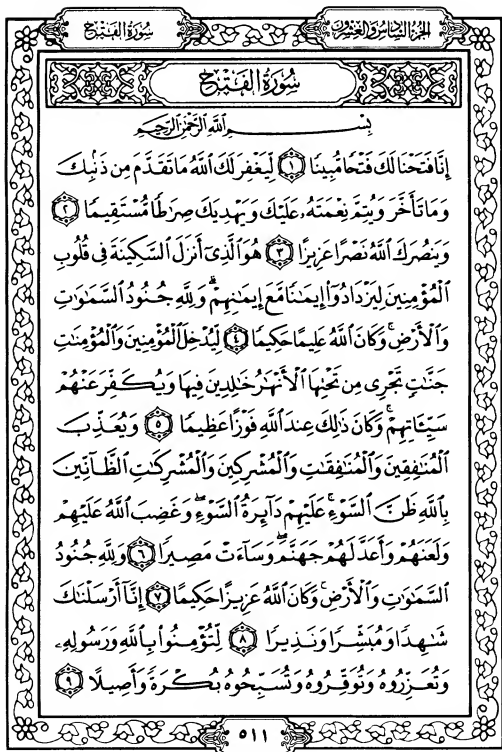 الجزء السادس والعشرون
سُورَةُ الفَتْحِ
سُورَةُ الفَتْحِ
بِسْمِ ٱللَّهِ ٱلرَّحْمَٰنِ ٱلرَّحِيمِ
إِنَّا فَتَحْنَا لَكَ فَتْحًا مُّبِينًا ١ لِّيَغْفِرَ لَكَ ٱللَّهُ مَا تَقَدَّمَ مِن ذَنۢبِكَ
وَمَا تَأَخَّرَ وَيُتِمَّ نِعْمَتَهُۥ عَلَيْكَ وَيَهْدِيَكَ صِرَٰطًا مُّسْتَقِيمًا ٢
وَيَنصُرَكَ ٱللَّهُ نَصْرًا عَزِيزًا ٣ هُوَ ٱلَّذِىٓ أَنزَلَ ٱلسَّكِينَةَ فِى قُلُوبِ
ٱلْمُؤْمِنِينَ لِيَزْدَادُوٓا۟ إِيمَٰنًا مَّعَ إِيمَٰنِهِمْ ۗ وَلِلَّهِ جُنُودُ ٱلسَّمَٰوَٰتِ
وَٱلْأَرْضِ ۚ وَكَانَ ٱللَّهُ عَلِيمًا حَكِيمًا ٤ لِّيُدْخِلَ ٱلْمُؤْمِنِينَ وَٱلْمُؤْمِنَٰتِ
جَنَّٰتٍ تَجْرِى مِن تَحْتِهَا ٱلْأَنْهَٰرُ خَٰلِدِينَ فِيهَا وَيُكَفِّرَ عَنْهُمْ
سَيِّـَٔاتِهِمْ ۚ وَكَانَ ذَٰلِكَ عِندَ ٱللَّهِ فَوْزًا عَظِيمًا ٥ وَيُعَذِّبَ
ٱلْمُنَٰفِقِينَ وَٱلْمُنَٰفِقَٰتِ وَٱلْمُشْرِكِينَ وَٱلْمُشْرِكَٰتِ ٱلظَّآنِّينَ
بِٱللَّهِ ظَنَّ ٱلسَّوْءِ ۚ عَلَيْهِمْ دَآئِرَةُ ٱلسَّوْءِ ۖ وَغَضِبَ ٱللَّهُ عَلَيْهِمْ
وَلَعَنَهُمْ وَأَعَدَّ لَهُمْ جَهَنَّمَ ۖ وَسَآءَتْ مَصِيرًا ٦ وَلِلَّهِ جُنُودُ
ٱلسَّمَٰوَٰتِ وَٱلْأَرْضِ ۚ وَكَانَ ٱللَّهُ عَزِيزًا حَكِيمًا ٧ إِنَّآ أَرْسَلْنَٰكَ
شَٰهِدًا وَمُبَشِّرًا وَنَذِيرًا ٨ لِّتُؤْمِنُوا۟ بِٱللَّهِ وَرَسُولِهِۦ
وَتُعَزِّرُوهُ وَتُوَقِّرُوهُ وَتُسَبِّحُوهُ بُكْرَةً وَأَصِيلًا ٩
٥١١